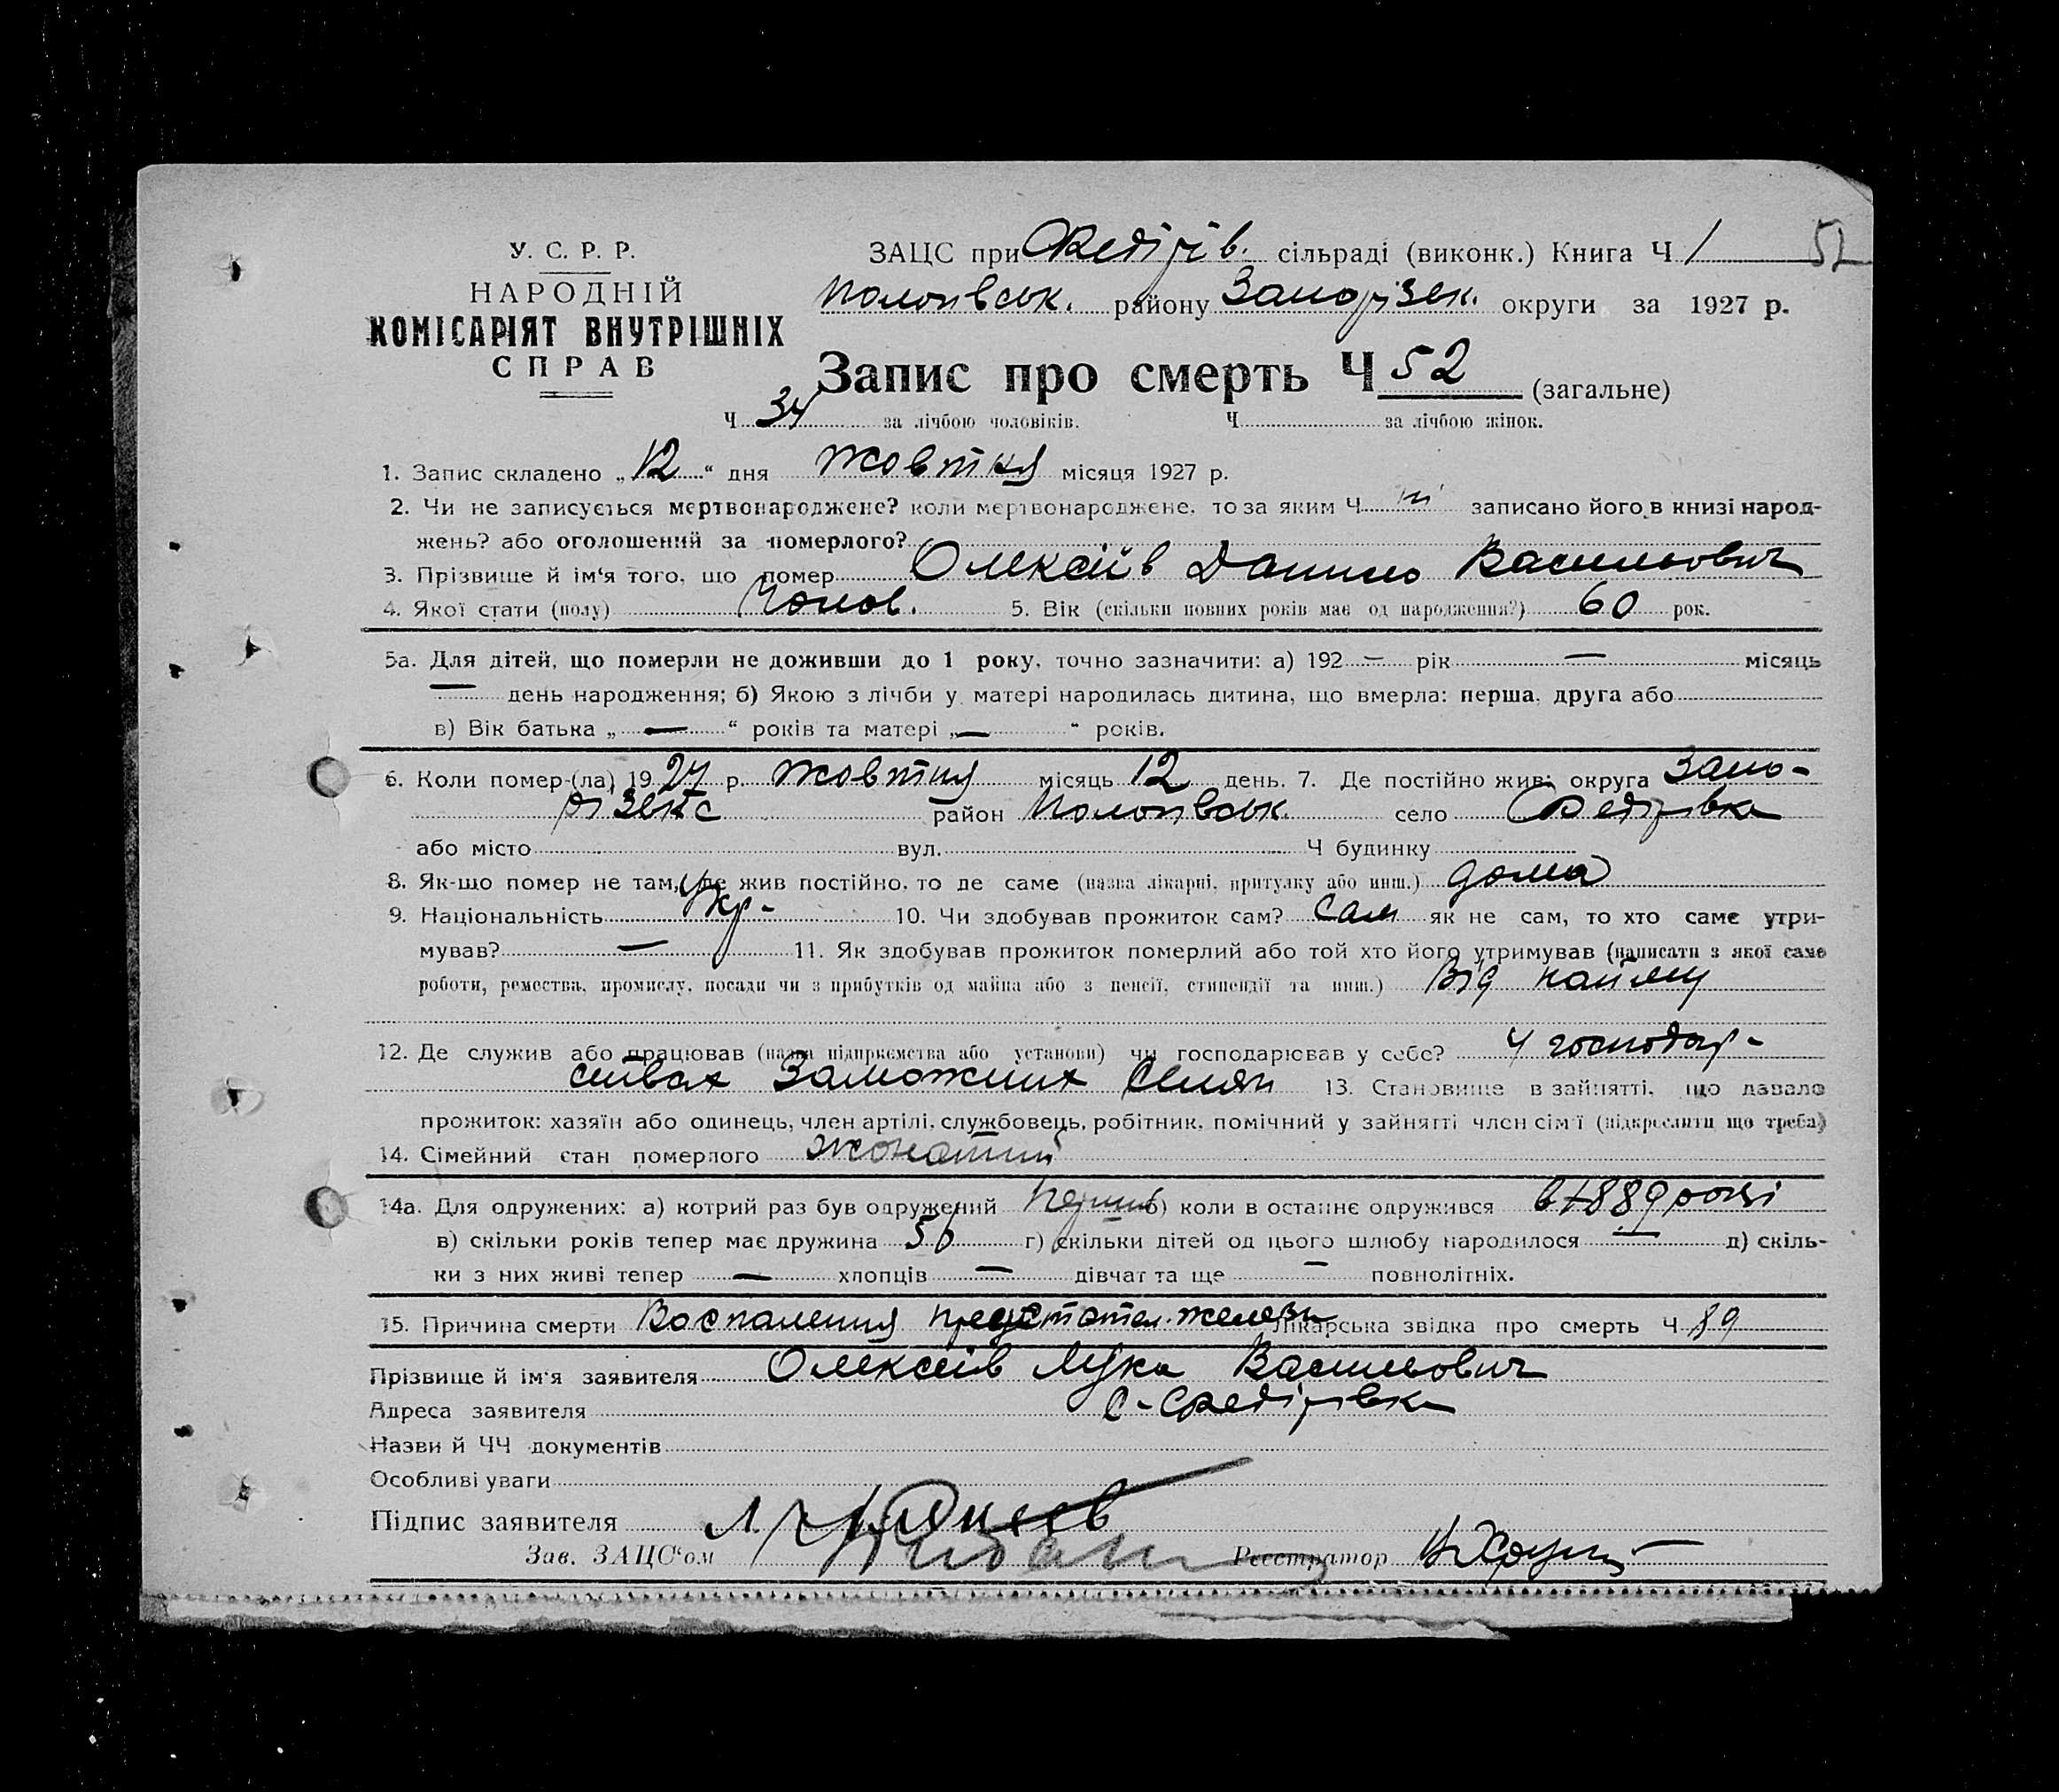 52
У. С. Р. Р.
НАРОДНІЙ
КОМІСАРІЯТ ВНУТРІШНІХ
СПРАВ
ЗАЦС при Федірів. сільраді (виконк.) Книга Ч 1
Пологівськ. району Запорізьк. округи за 1927 р.
Запис про смерть Ч 52 (загальне)
Ч 34 за лічбою чоловіків. Ч за лічбою жінок.
1. Запис складено „12“ дня жовтня місяця 1927 р.
2. Чи не записується мертвонароджене? коли мертвонароджене, то за яким Ч ні записано його в книзі народ-
жень? або оголошений за померлого?
3. Прізвище й ім'я того, що помер Олексіїв Данило Васильович
4. Якої стати (полу) Чолов. 5. Вік (скільки повних років має од народження?) 60 рок.
5а. Для дітей, що померли не доживши до 1 року, точно зазначити: а) 192 — рік — місяць
— день народження; б) Якою з лічби у матері народилась дитина, що вмерла: перша, друга або
в) Вік батька „ — “ років та матері „ — “ років.
6. Коли помер-(ла) 1927 р. жовтня місяць 12 день. 7. Де постійно жив: округа Запо-
різька район Пологівськ. село Федірівка
або місто вул. Ч будинку
8. Як-що помер не там, де жив постійно, то де саме (назва лікарні, притулку або инш.) дома
9. Національність Укр- 10. Чи здобував прожиток сам? Сам як не сам, то хто саме утри-
мував? — 11. Як здобував прожиток померлий або той хто його утримував (написати з якої саме
роботи, ремества, промислу, посади чи з прибутків од майна або з пенсії, стипендії та инш.) Від найму
12. Де служив або працював (назва підприємства або установи) чи господарював у себе? У господар-
ствах Заможних Селян 13. Становище в зайнятті, що давало
прожиток: хазяїн або одинець, член артілі, службовець, робітник, помічний у зайнятті член сім'ї (підкреслити що треба)
14. Сімейний стан померлого жонатий
14а. Для одружених: а) котрий раз був одружений Перший б) коли в останнє одружився в 1889 році
в) скільки років тепер має дружина 56 г) скільки дітей од цього шлюбу народилося — д) скіль-
ки з них живі тепер — хлопців — дівчат та ще — повнолітніх.
15. Причина смерти Воспаления предстател. железы Лікарська звідка про смерть Ч 89
Прізвище й ім'я заявителя Олексіїв Лука Васильович
Адреса заявителя с. Федірівка
Назви й ЧЧ документів
Особливі уваги
Підпис заявителя
Зав. ЗАЦС'ом Реєстратор